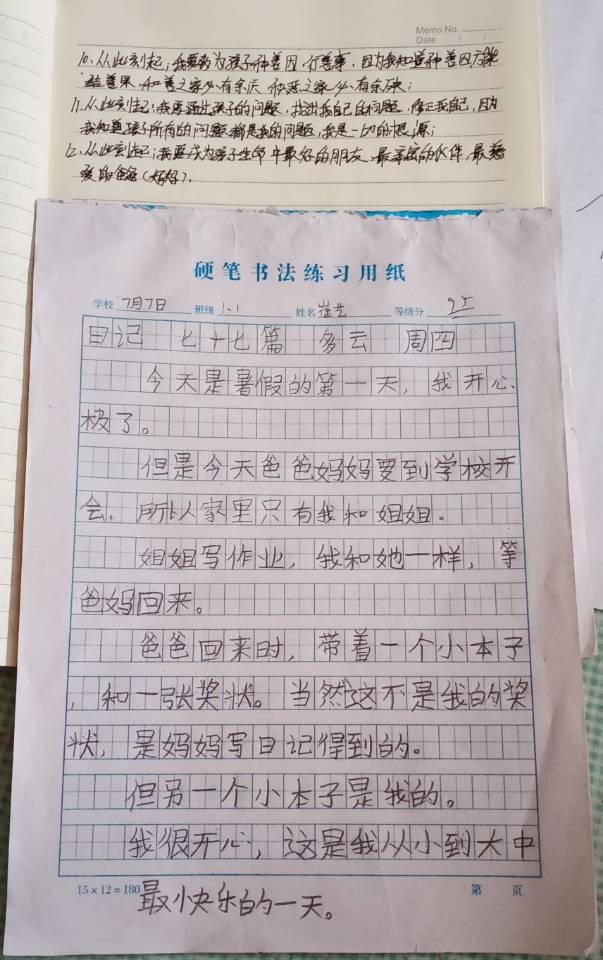 Memo No.
Date / /
10、从此刻起；我要为孩子种善因，行善事，因为我知道种善因方能
结善果，和善之家必有余庆 积恶之家必有余殃；
11、从此刻起；我要通过孩子的问题，找出我自己的问题，修正我自己，因
我知道孩子所有的问题都是我的问题，我是一切的根源；
12、从此刻起；我要成为孩子生命中最好的朋友，最亲密的伙伴，最慈
爱的
硬笔书法练习用纸
学校 7月7日 班级 1.1 姓名 崔艺 等级分 95
日记 七十七篇 多云 周四
今天是暑假的第一天，我开心
极了。
但是今天爸爸妈妈要到学校开
会，所以家里只有我和姐姐。
姐姐写作业，我和她一样，等
爸妈回来。
爸爸回来时，带着一个小本子
，和一张奖状。当然这不是我的奖
状，是妈妈写日记得到的。
但另一个小本子是我的。
我很开心，这是我从小到大中
15×12=180 第 页
最快乐的一天。